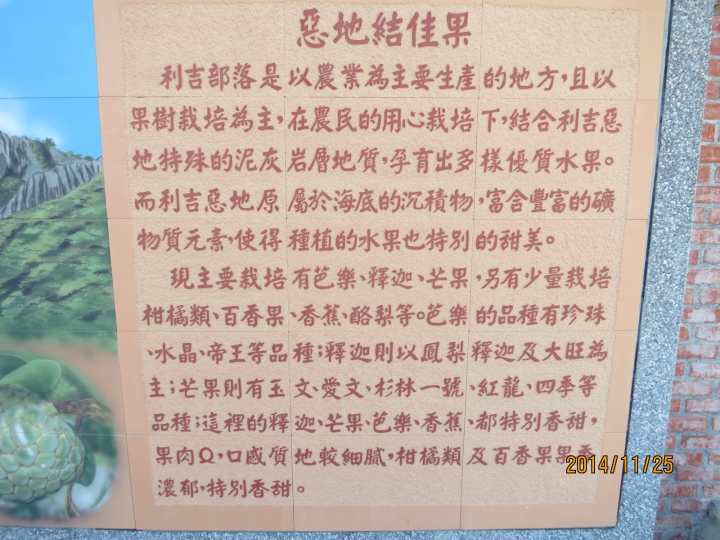 惡地結佳果
利吉部落是以農業為主要生產的地方,且以
果樹栽培為主,在農民的用心栽培下,結合利吉惡
地特殊的泥灰岩層地質,孕育出多樣優質水果。
而利吉惡地原屬於海底的沉積物,富含豐富的礦
物質元素,使得種植的水果也特別的甜美。
現主要栽培有芭樂、釋迦、芒果,另有少量栽培
柑橘類、百香果、香蕉、酪梨等。芭樂的品種有珍珠
、水晶、帝王等品種;釋迦則以鳳梨釋迦及大旺為
主;芒果則有玉文、愛文、杉林一號、紅龍、四季等
品種;這裡的釋迦、芒果、芭樂、香蕉、都特別香甜,
果肉Ω,口感質地較細膩,柑橘類及百香果果香
濃郁,特別香甜。
2014/11/25